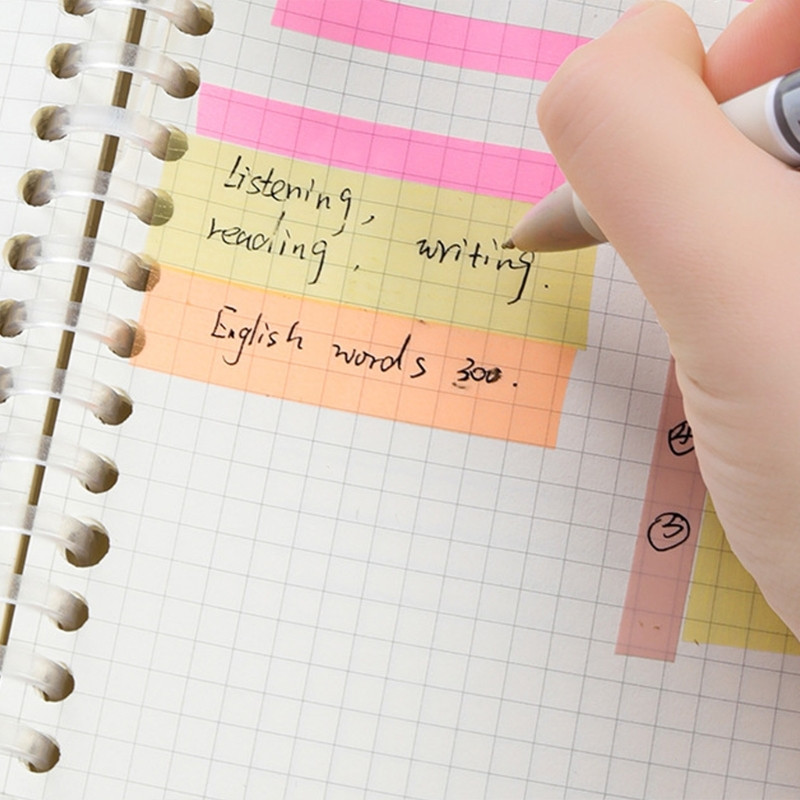 Listening,
reading, writing.
English words 300.
④
⑤